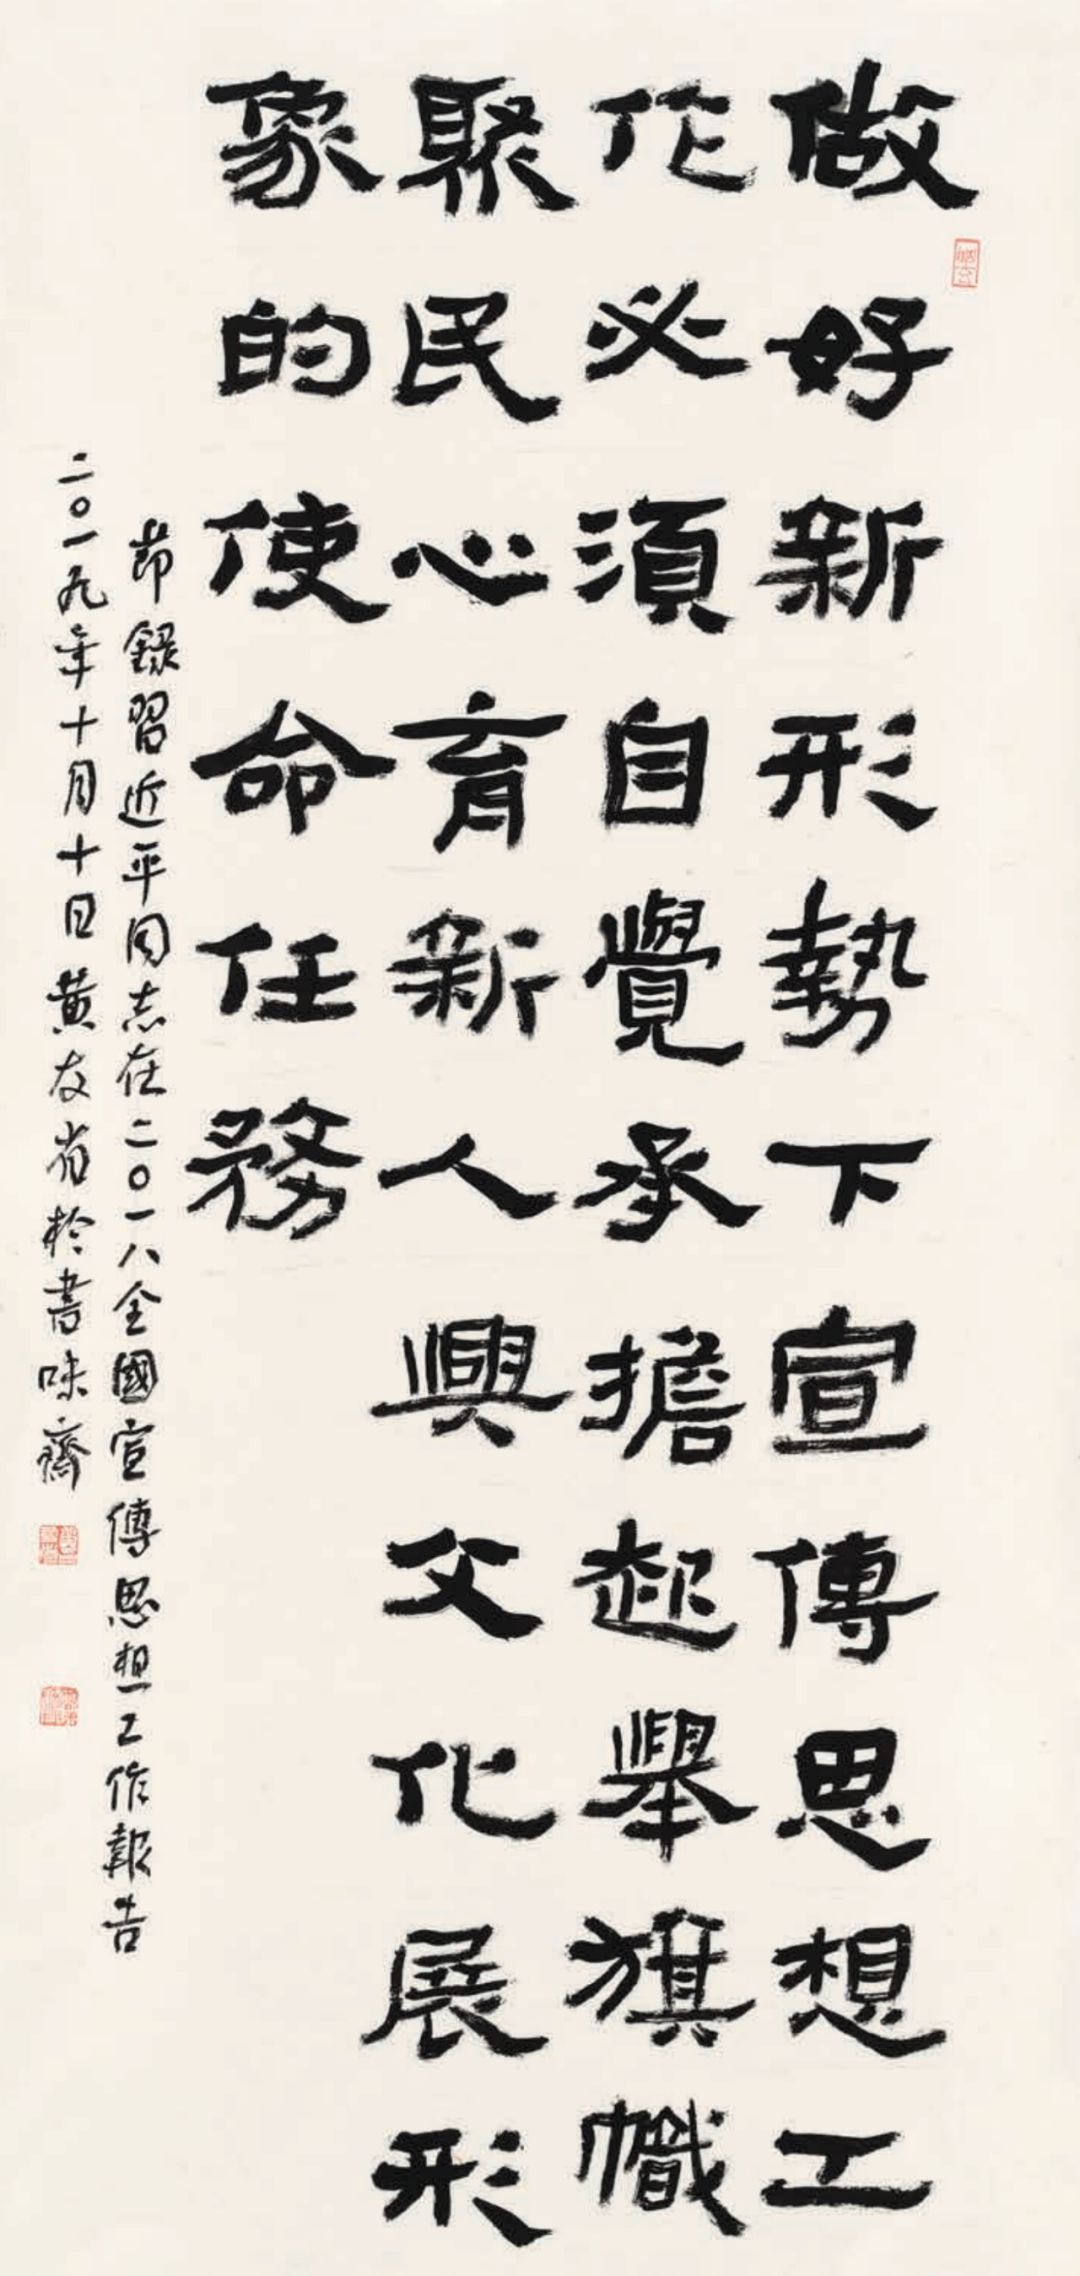 做好新形勢下宣傳思想工
作必須自覺承擔起舉旗幟
聚民心育新人興文化展形
象的使命任務
節錄習近平同志在二〇一八全國宣傳思想工作報告
二〇一九年十月十日黄友省於書味齋